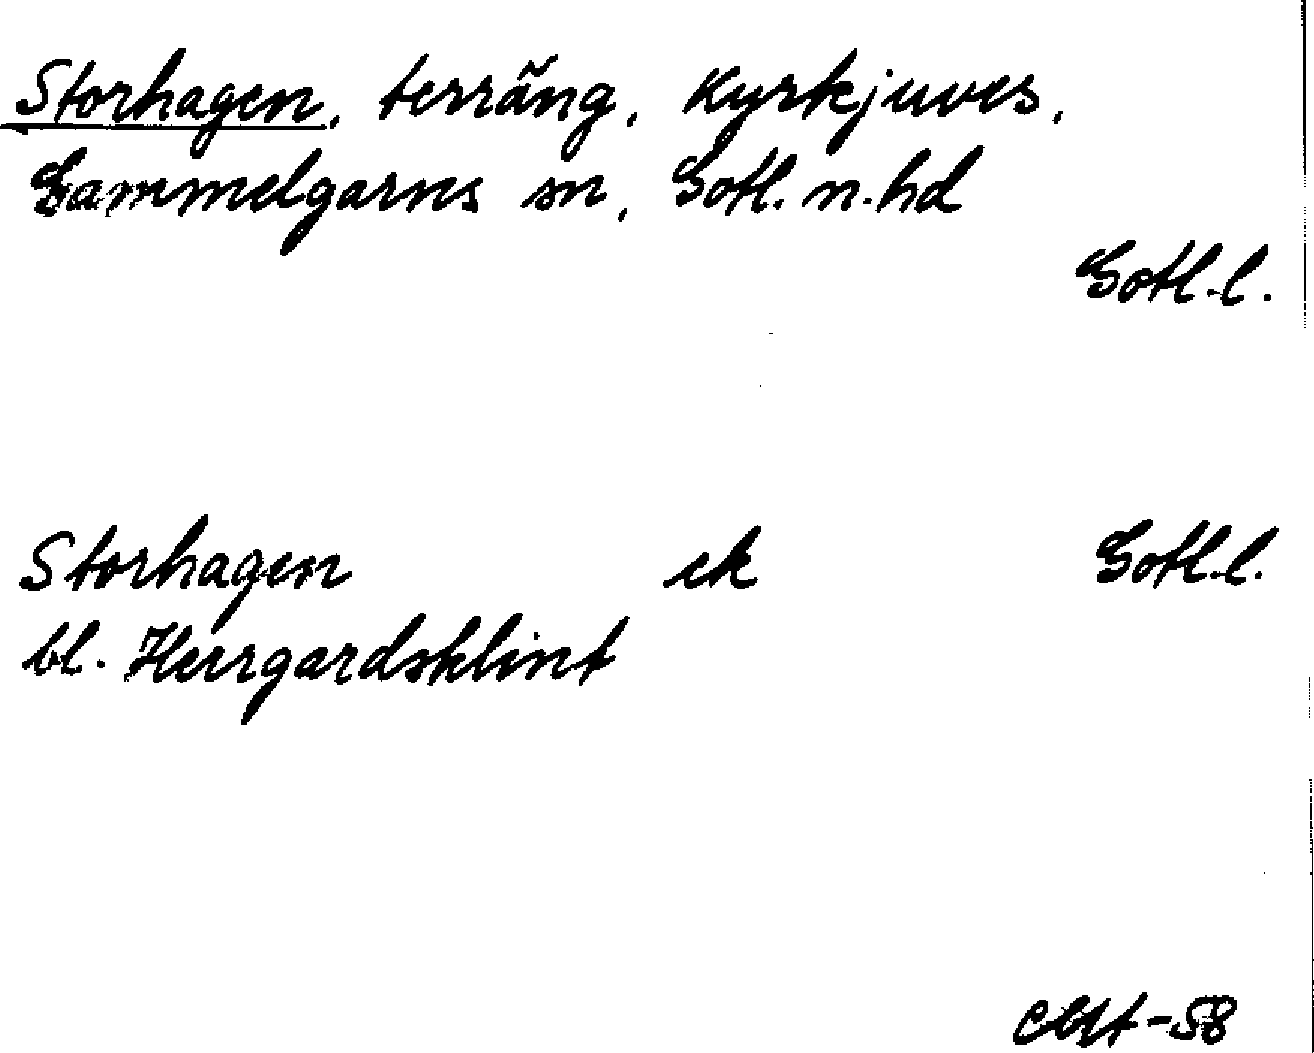 Storhagen, terräng, Kyrkjuves,
Gammelgarns sn, Gotl. n. hd
Gotl. l.
Storhagen ek Gotl. l.
bl. Herrgardsklint
-58